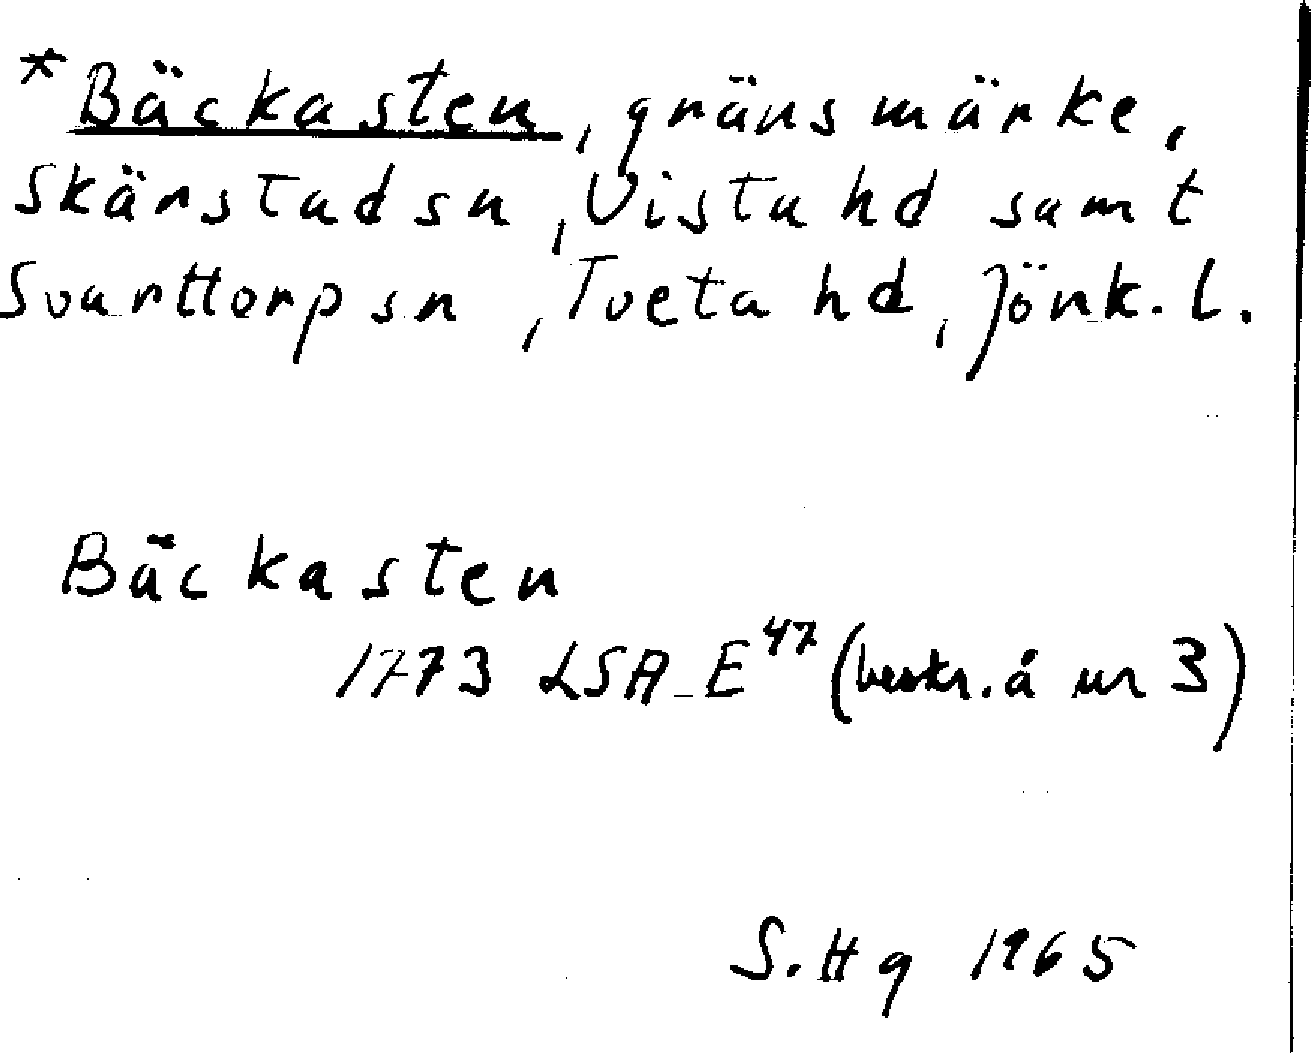 *Bäckasten, gränsmärke,
Skärstad sn, Vista hd samt
Svarttorp sn, Tveta hd, Jönk. l.
Bäckasten
1773 LSA E47 (beskr. å nr 3)
S. Hg 1965